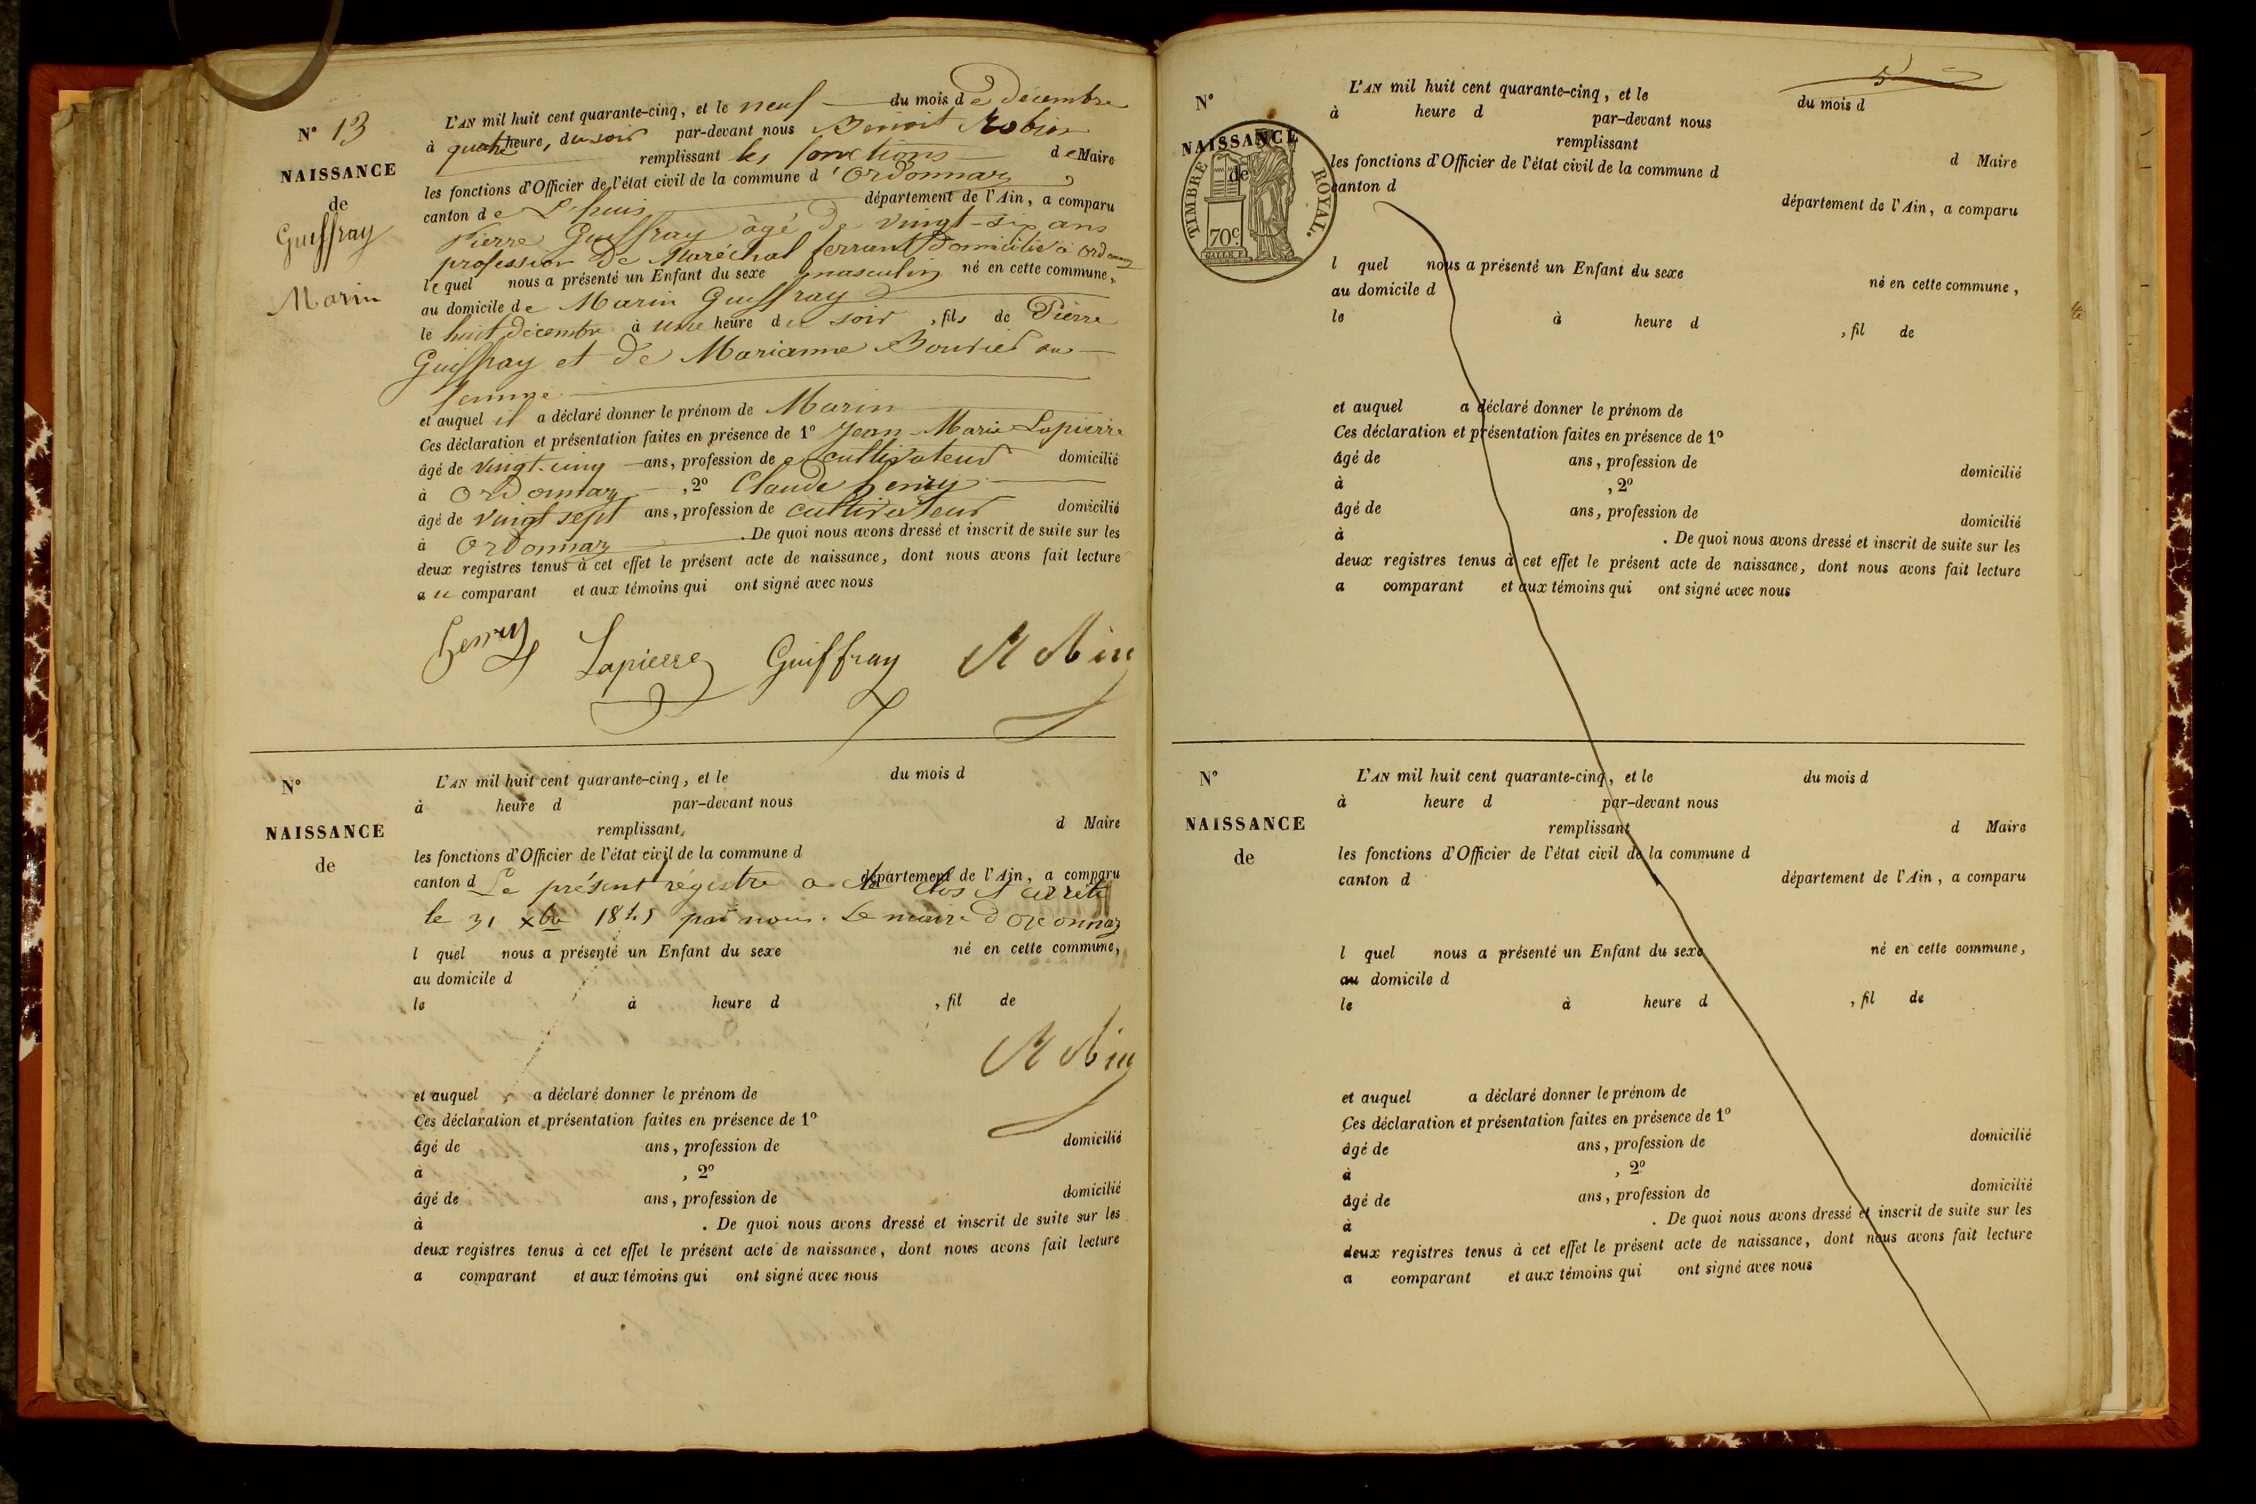 N° 13
NAISSANCE
de
Guiffray
Marin
L'AN mil huit cent quarante-cinq, et le neuf du mois de décembre
à quatre heure, du soir par-devant nous Benoit Robin
remplissant les fonctions de Maire
les fonctions d'Officier de l'état civil de la commune d'Ordonnaz
canton de L'huis département de l'Ain, a comparu
Pierre Guiffray âgé de vingt-six ans
profession de Maréchal ferrant domicilié à Ordonnaz
lequel nous a présenté un Enfant du sexe masculin né en cette commune,
au domicile de Marin Guiffray
le huit décembre à une heure du soir, fils de Pierre
Guiffray et de Marianne sa
femme
et auquel il a déclaré donner le prénom de Marin
Ces déclaration et présentation faites en présence de 1° Jean-Marie Lapierre
âgé de vingt-cinq ans, profession de cultivateur domicilié
à Ordonnaz, 2° Claude henry
âgé de vingt sept ans, profession de cultivateur domicilié
à Ordonnaz. De quoi nous avons dressé et inscrit de suite sur les
deux registres tenus à cet effet le présent acte de naissance, dont nous avons fait lecture
au comparant et aux témoins qui ont signé avec nous
henry Lapierre Guiffray Robin
N°
NAISSANCE
de
L'AN mil huit cent quarante-cinq, et le du mois d
à heure d par-devant nous
remplissant d Maire
les fonctions d'Officier de l'état civil de la commune d
canton d département de l'Ain, a comparu
Le présent régistre a été clos et arrêté
le 31 xbre 1845 par nous. Le maire d'Ordonnaz
l quel nous a présenté un Enfant du sexe né en cette commune,
au domicile d
le à heure d , fil de
Robin
et auquel a déclaré donner le prénom de
Ces déclaration et présentation faites en présence de 1°
âgé de ans, profession de domicilié
à , 2°
âgé de ans, profession de domicilié
à . De quoi nous avons dressé et inscrit de suite sur les
deux registres tenus à cet effet le présent acte de naissance, dont nous avons fait lecture
a comparant et aux témoins qui ont signé avec nous
5
N°
NAISSANCE
de
TIMBRE ROYAL.
70c.
L'AN mil huit cent quarante-cinq, et le du mois d
à heure d par-devant nous
remplissant d Maire
les fonctions d'Officier de l'état civil de la commune d
canton d département de l'Ain, a comparu
l quel nous a présenté un Enfant du sexe né en cette commune,
au domicile d
le à heure d , fil de
et auquel a déclaré donner le prénom de
Ces déclaration et présentation faites en présence de 1°
âgé de ans, profession de domicilié
à , 2°
âgé de ans, profession de domicilié
à . De quoi nous avons dressé et inscrit de suite sur les
deux registres tenus à cet effet le présent acte de naissance, dont nous avons fait lecture
a comparant et aux témoins qui ont signé avec nous
N°
NAISSANCE
de
L'AN mil huit cent quarante-cinq, et le du mois d
à heure d par-devant nous
remplissant d Maire
les fonctions d'Officier de l'état civil de la commune d
canton d département de l'Ain, a comparu
l quel nous a présenté un Enfant du sexe né en cette commune,
au domicile d
le à heure d , fil de
et auquel a déclaré donner le prénom de
Ces déclaration et présentation faites en présence de 1°
âgé de ans, profession de domicilié
à , 2°
âgé de ans, profession de domicilié
à . De quoi nous avons dressé et inscrit de suite sur les
deux registres tenus à cet effet le présent acte de naissance, dont nous avons fait lecture
a comparant et aux témoins qui ont signé avec nous